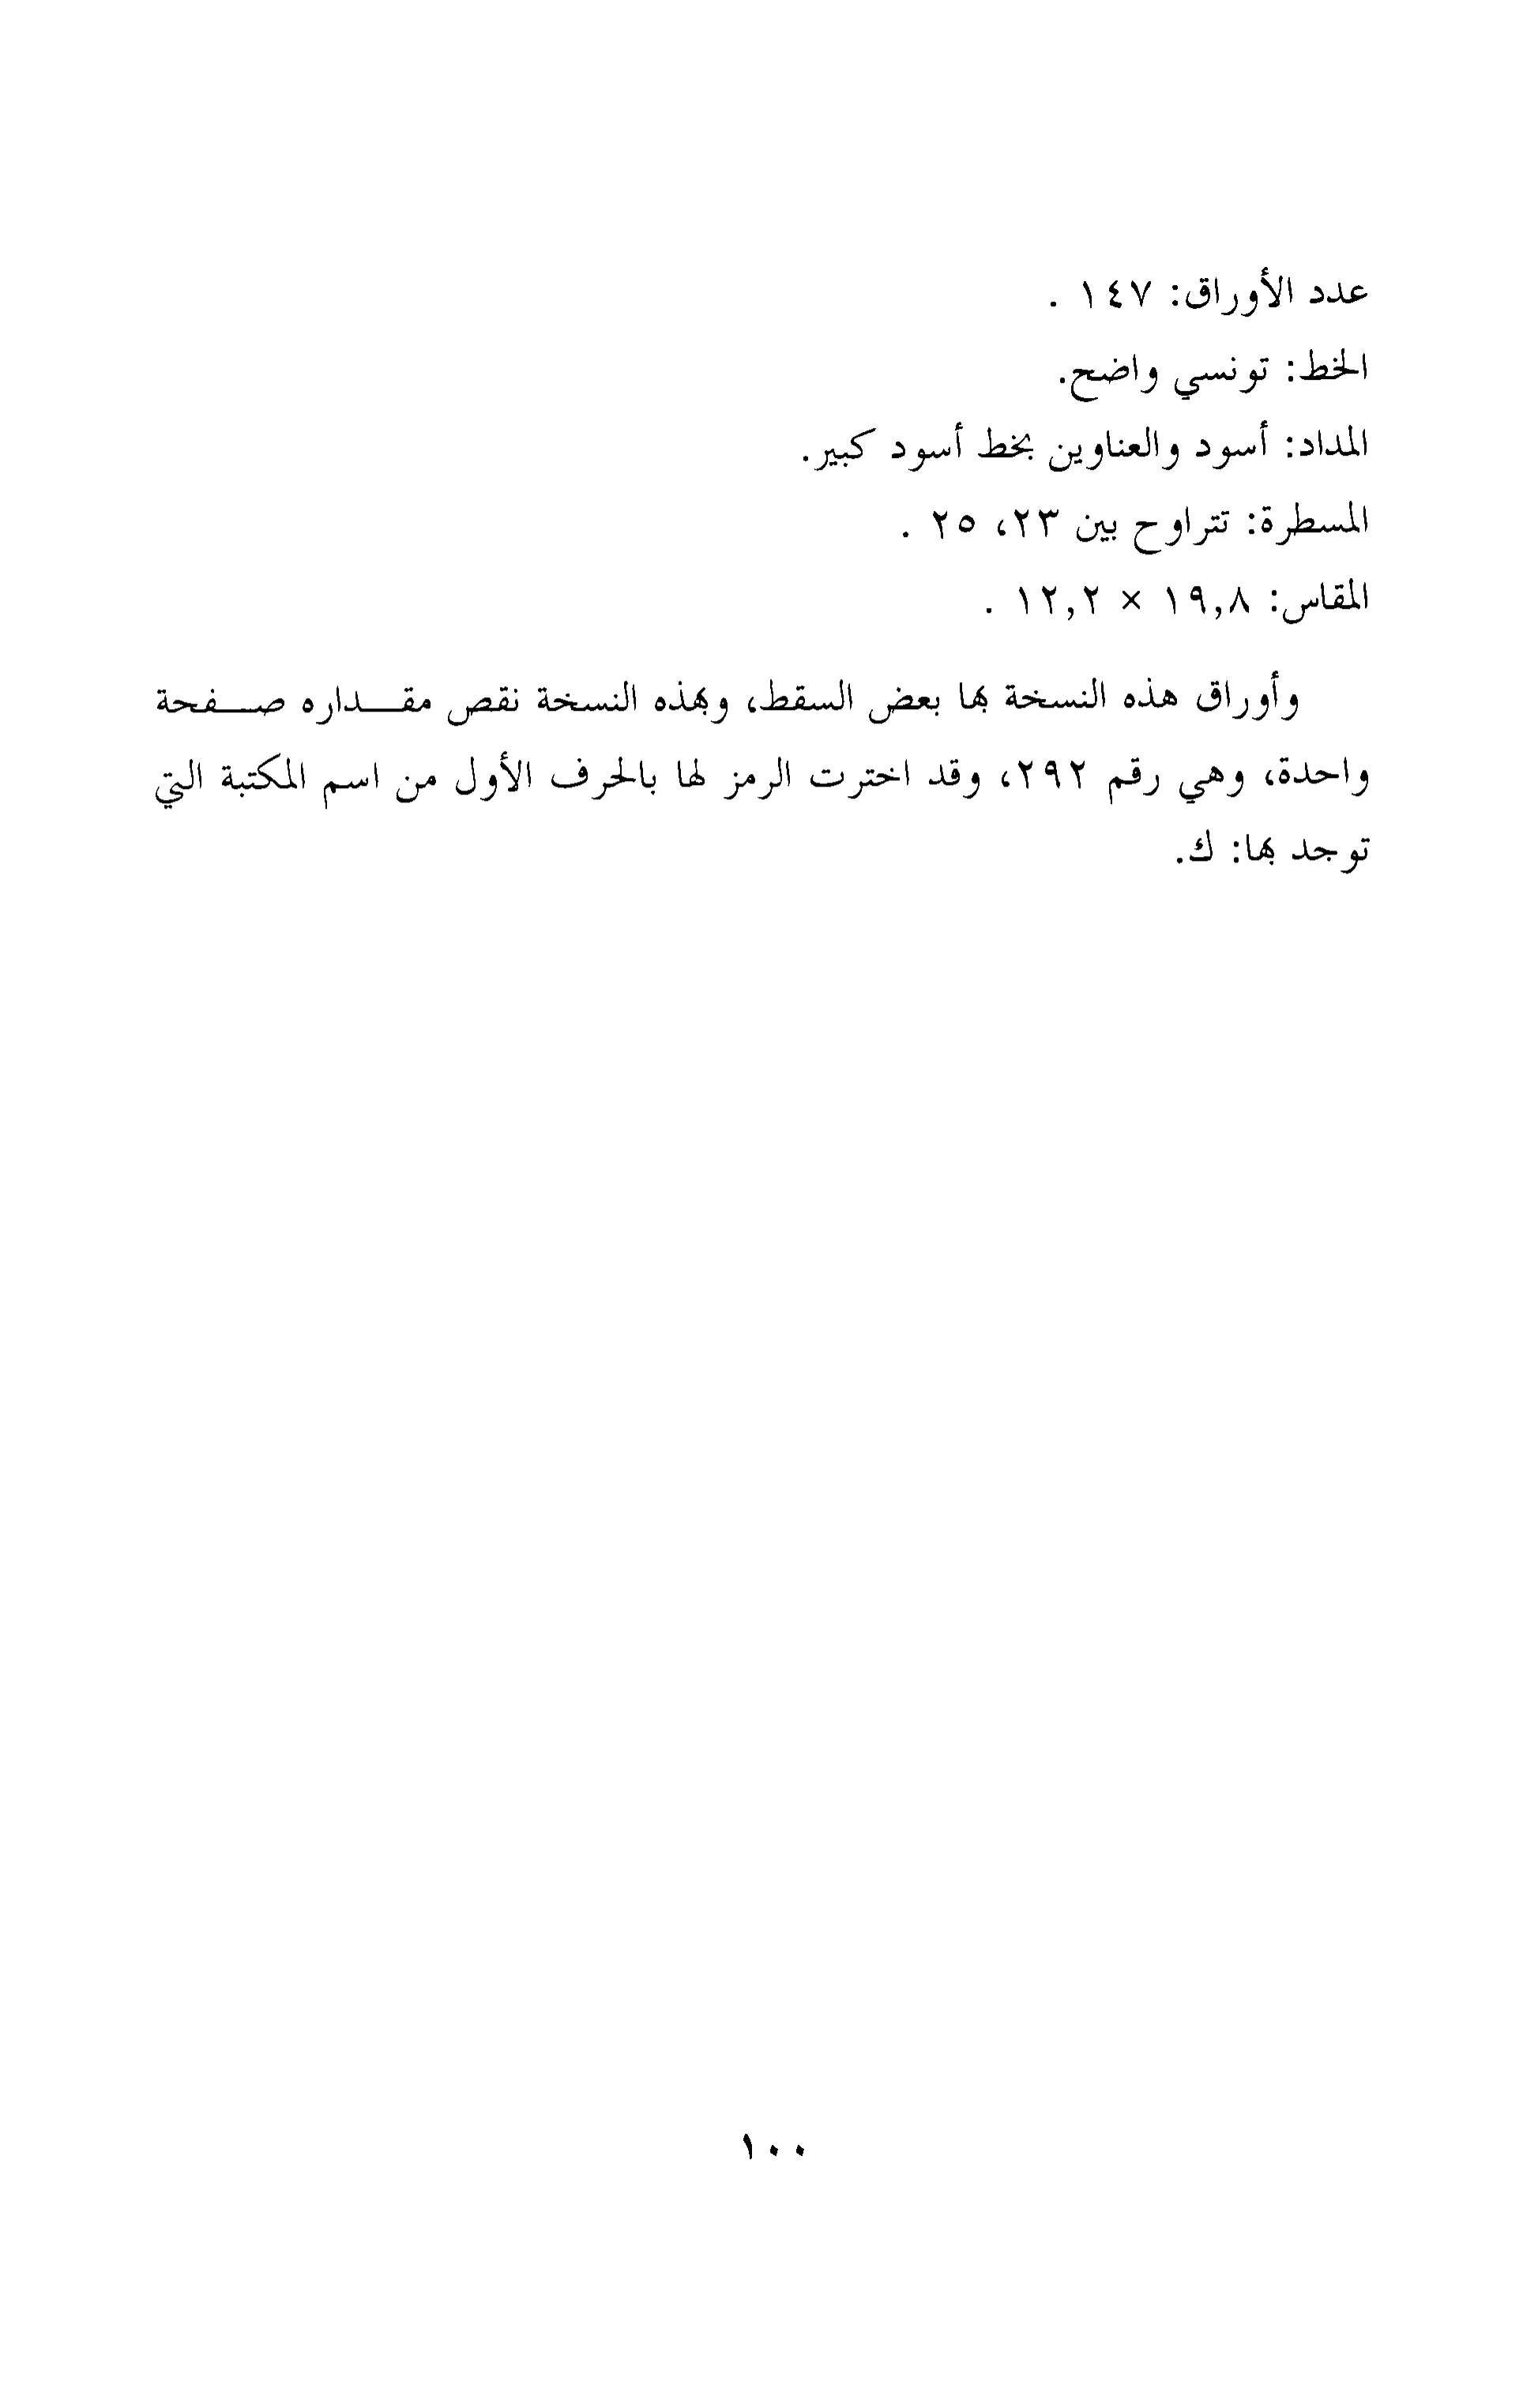 عدد الأوراق: ١٤٧ .
الخط: تونسي واضح.
المداد: أسود والعناوين بخط أسود كبير.
المسطرة: تتراوح بين ٢٣، ٢٥ .
المقاس: ١٩,٨ × ١٢,٢ .
وأوراق هذه النسخة بها بعض السقط، وبهذه النسخة نقص مقـداره صـفحة
واحدة، وهي رقم ٢٩٢، وقد اخترت الرمز لها بالحرف الأول من اسم المكتبة التي
توجد بها: ك.
١٠٠